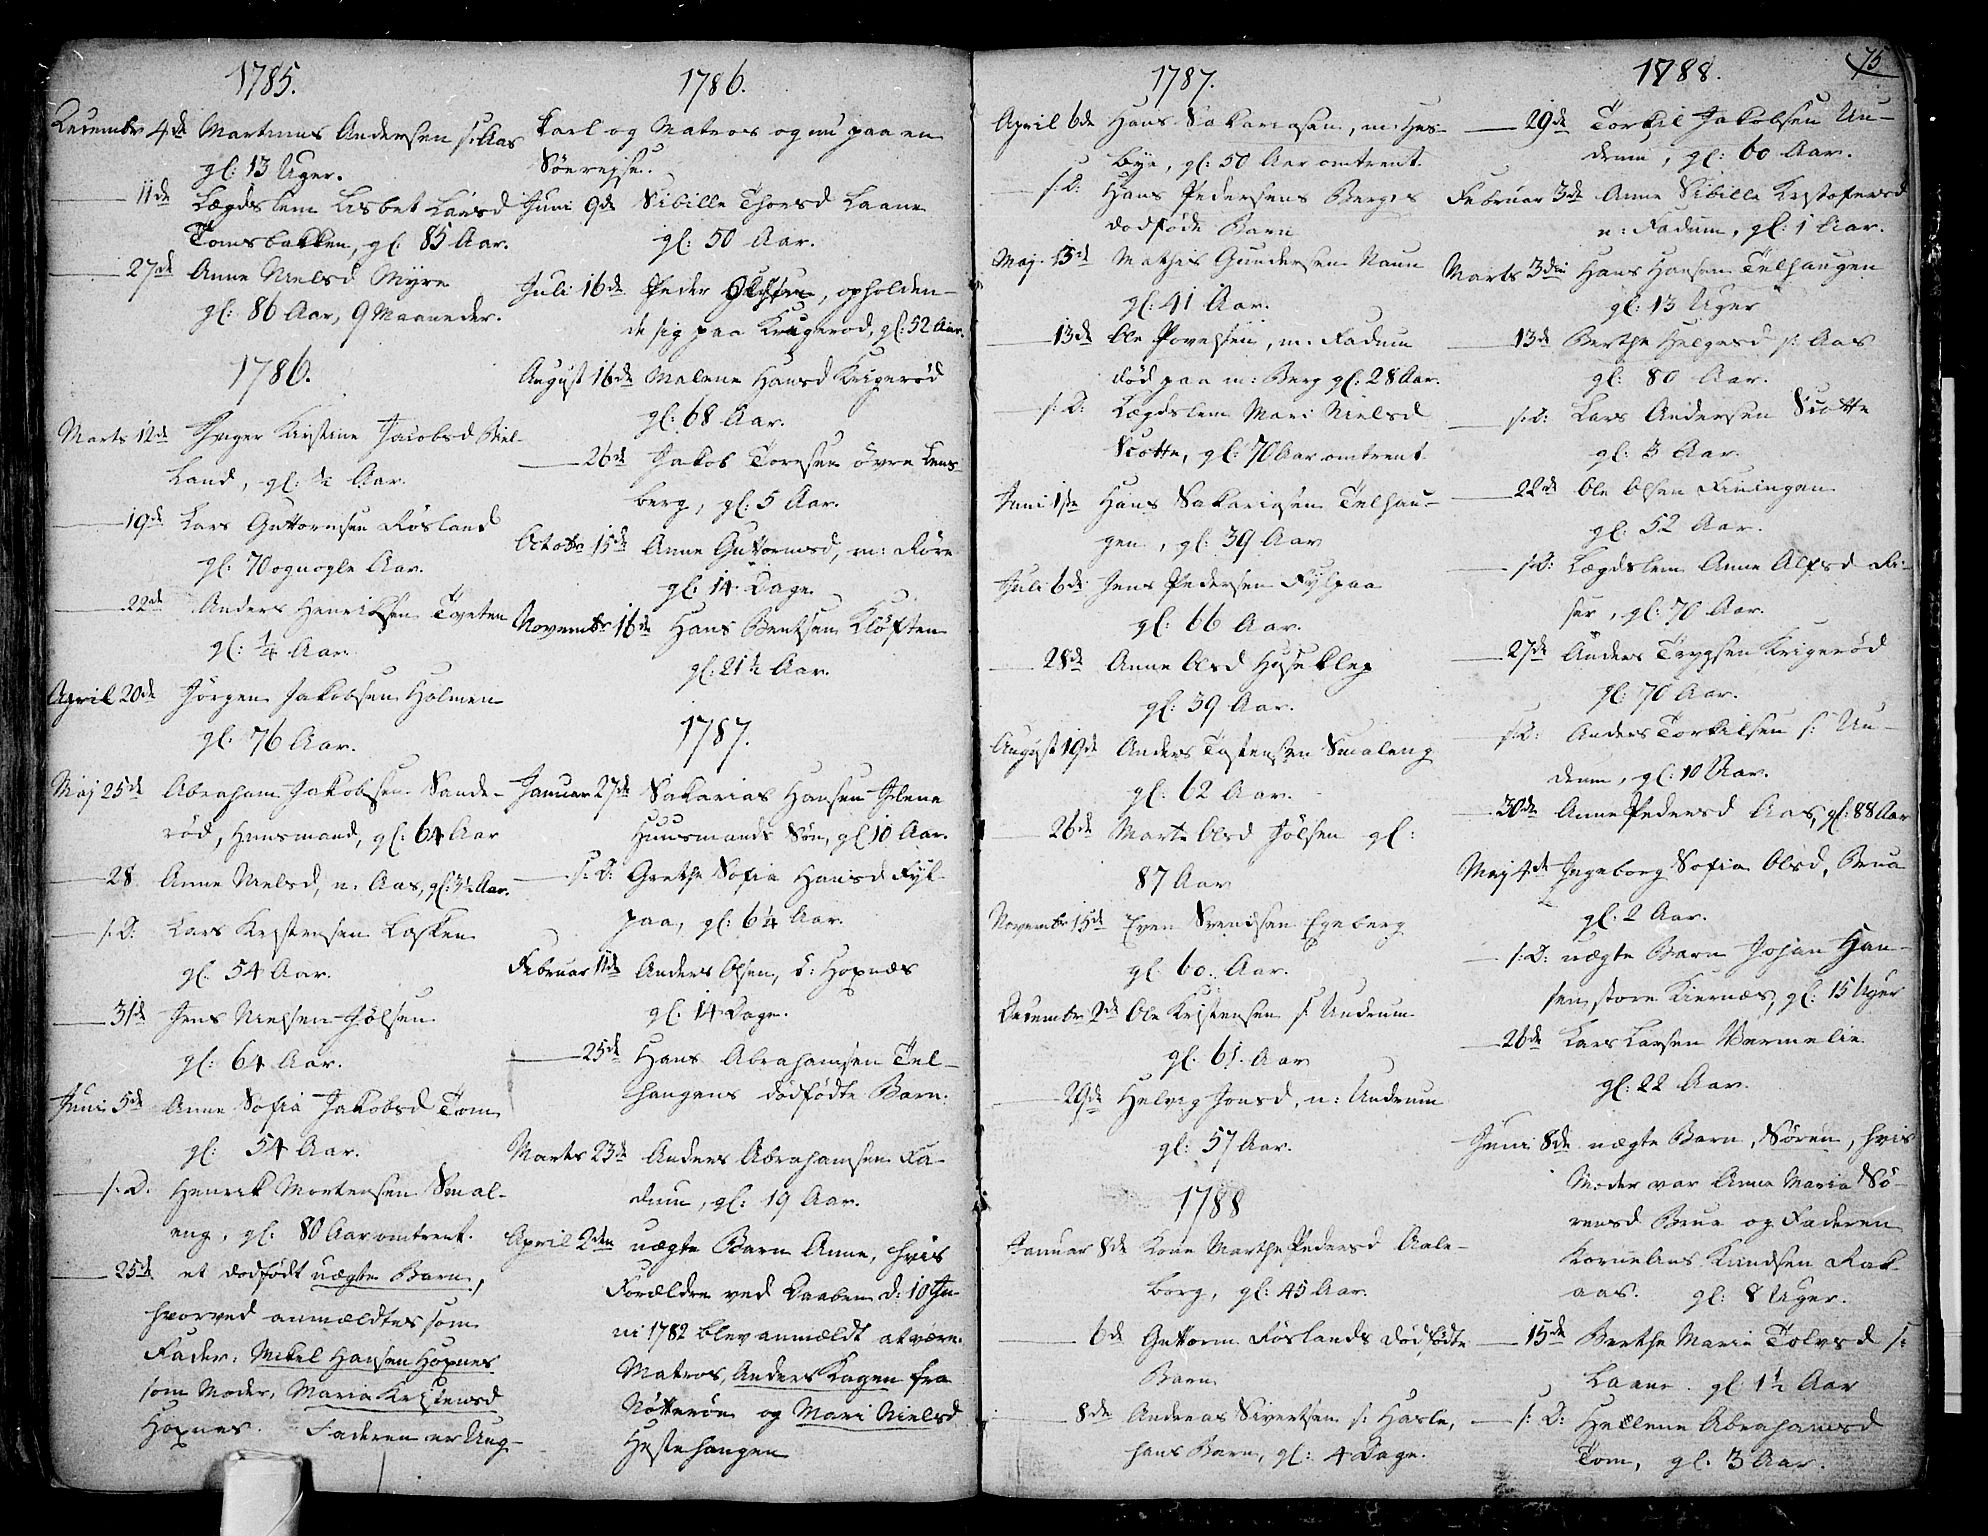 1785.
Decembr 4de Martinus Andersen s: Aas
gl: 13 Uger.
11de Lægdslem Lisbet Larsd
Tomsbakken, gl: 85 Aar.
27de Anne Nielsd Myre
gl: 86 Aar, 9 Maaneder.
1786.
Marts 12de Inger Kirstine Jacobsd Biel-
land, gl: ½ Aar.
19de Lars Guttormsen Røsland
gl: 70 og nogle Aar.
22de Anders Henriksen Tveten
gl: ¼ Aar.
April 20de Jørgen Jakobsen Holmen
gl: 76 Aar.
Maj 25de Abraham Jakobsen Sande-
rød, Huusmand, gl: 64 Aar
28. Anne Nielsd, n: Aas, gl: 3½ Aar.
s: D: Lars Kristensen Løkken
gl: 54 Aar.
31de Jens Nielsen Jølsen
gl: 64 Aar.
Juni 5de Anne Sofia Jakobsd Tom
gl: 54 Aar.
s: D. Henrik Mortensen Smal-
eng, gl: 80 Aar omtrent.
25de et dødfødt uægte Barn,
hvorved anmældtes som
Fader: Mikel Hansen Hoxnes
som Moder, Maria Kristensd
Hoxnes. Faderen er Ung-
1786.
karl og Matros og nu paa en
Søerejse.
Juni 9de Sibille Thorsd Laane
gl: 50 Aar.
Juli 16de Peder Olsen, opholden-
de sig paa Krugerød, gl: 52 Aar.
August 16de Malene Hansd Krigerød
gl: 68 Aar.
26de Jakob Toresen øvre Lens-
berg, gl: 5 Aar.
Octobr 15de Anne Guttormsd, m: Røre
gl: 14 Dage
Novembr 16de Hans Bentsen Kløften
gl: 21½ Aar.
1787.
Januar 27de Sakarias Hansen Ilene
Huusmands Søn, gl 10 Aar.
s: D: Grethe Sofia Hansd Fyl-
paa, gl: 6¼ Aar.
Februar 11de Anders Olsen, ø: Hoxnes
gl. 14 Dage.
25de Hans Abrahamsen Tel-
haugens dødfødte Barn.
Marts 23de Anders Abrahamsen Fa-
dum, gl: 19 Aar.
April 2den uægte Barn Anne, hvis
Forældre ved Daaben d: 10 Ju-
ni 1782 blev anmældt at være
Matros, Anders Kagen fra
Nøtterøe og Mari Nielsd
Hestehaugen
1787.
April 6de Hans Sakariasen, m: Hes-
bye, gl: 50 Aar omtrent.
s: D: Hans Pedersens Berges
dødfødt Barn
Maj 13de Mathis Gundersen Naun
gl: 41 Aar.
13de Ole Povelsen, m. Fadum
død paa m: Berg gl: 28 Aar.
s: D: Lægdslem Mari Nielsd
Scotte, gl: 70 Aar omtrent
Juni 1ste Hans Sakariasen Telhau-
gen, gl: 39 Aar
Juli 6de Jens Pedersen Fylpaa
gl: 66 Aar.
28de Anne Olsd Hoseklep
gl: 39 Aar.
August 19de Anders Tostensen Smaleng
gl: 62 Aar.
26de Marte Olsd Jølsen gl:
87 Aar
Novembr 15de Even Svendsen Egeberg
gl: 60. Aar.
Decembr 2de Ole Kristensen s: Undrum
gl. 61. Aar
29de Helvig Jonsd, n: Undrum
gl: 57 Aar.
1788
Januar 8de Kone Marthe Pedersd Aale-
borg, gl: 45 Aar.
6de Guttorm Røslands dødfødte
Barn
8de Andreas Sivertsen s: Hasle,
hans Barn, gl: 4 Dage.
1788. 75
29de Torkil Jakobsen Un-
drum, gl: 60 Aar.
Februar 3de Anne Sibille Kristofersd
n: Fadum, gl: 1 Aar.
Marts 3die Hans Hansen Telhaugen
gl: 13 Uger
13de Berthe Helgesd s: Aas
gl: 80 Aar.
s: D: Lars Andersen Scotte
gl: 3 Aar.
22de Ole Olsen Finingen
gl: 52 Aar.
s: D: Lægdslem Anne Alfsd Ri-
ser, gl: 70 Aar.
27de Anders Trygsen Krigerød
gl: 70 Aar.
s: D: Anders Torkilsen s: Un-
drum, gl: 10 Aar.
30de Anne Pedersd Aas, gl: 88 Aar
Maj 4de Ingeborg Sofia Olsd, Brua
gl: 2 Aar.
s: D: uægte Barn Johan Han-
sen, store Kiernæs, gl: 15 Uger
26de Lars Larsen Vermelie
gl: 22 Aar.
Juni 8de uægte Barn, Søren, hvis
Moder var Anna Maria Sø-
rensd Brua og Faderen
Kornelius Knudsen Rak-
aas. gl: 8 Uger.
15de Berthe Maria Tolvsd s:
Laane. gl 1½ Aar
s: D: Hellene Abrahamsd
Tom, gl. 3 Aar.